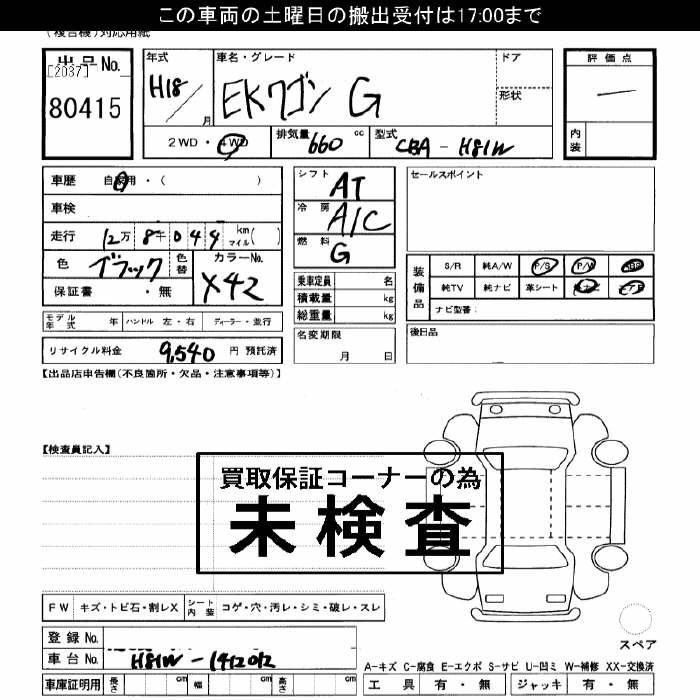 この車両の土曜日の搬出受付は17:00まで
(複合機)対応用紙
出品No.
[2037]
80415
年式
H18
月
車名・グレード
EKワゴン G
ドア
形状
評価点
—
内装
2WD・4WD
排気量 660 cc
型式 CBA - H81W
車歴 自家用・( )
車検
走行 12万 8千 0 4 4 km マイル( )
色 ブラック 色替
カラーNo. X42
保証書 ・無
シフト AT
冷房 A/C
燃料 G
乗車定員 名
積載量 kg
総重量 kg
名変期限
月 日
セールスポイント
装備品
S/R 純A/W P/S P/W ABS
純TV 純ナビ 革シート
ナビ型番:
後日品
モデル年式 年 ハンドル 左・右 ディーラー・並行
リサイクル料金 9,540 円 預託済
【出品店申告欄(不良箇所・欠品・注意事項等)】
【検査員記入】
買取保証コーナーの為
未検査
FW キズ・トビ石・割レX
シート内装 コゲ・穴・汚レ・シミ・破レ・スレ
登録No.
車台No. H81W-1412012
車庫証明用 長さ cm 幅 cm 高さ cm
スペア
A-キズ C-腐食 E-エクボ S-サビ U-凹ミ W-補修 XX-交換済
工具 有・無 ジャッキ 有・無